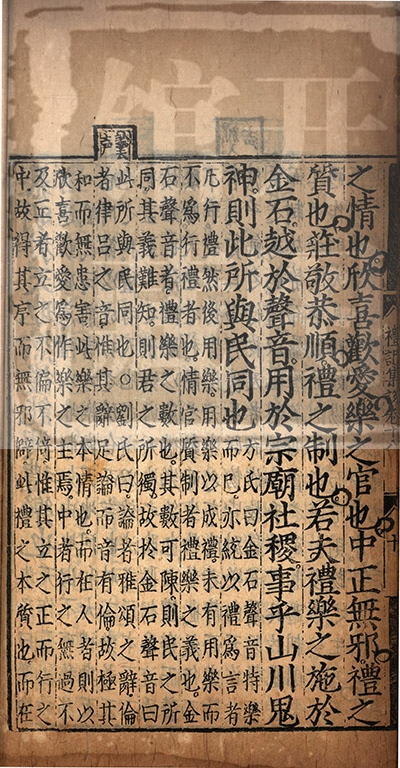 禮記集
之情也欣喜歡愛樂之官也中正無邪禮之
質也莊敬恭順禮之制也若夫禮樂之施於
金石越於聲音用於宗廟社稷事乎山川鬼
神則此所與民同也
方氏曰金石聲音特樂
而已亦統以禮爲言者
凡行禮然後用樂用樂以成禮未有用樂而
不爲行禮者也情官質制者禮樂之義也金
石聲音者禮樂之數也其數可陳則民之所
同其義難知則君之所獨故於金石聲音曰
此所與民同也○劉氏曰論者雅頌之辭倫
者律呂之音惟其辭足論而音有倫故極其
和而無患害此樂之本情也而在人者則以
欣喜歡愛爲作樂之主焉中者行之無過不
及正者立之不偏不倚惟其立之正而行之
中故得其序而無邪辟此禮之本質也而在